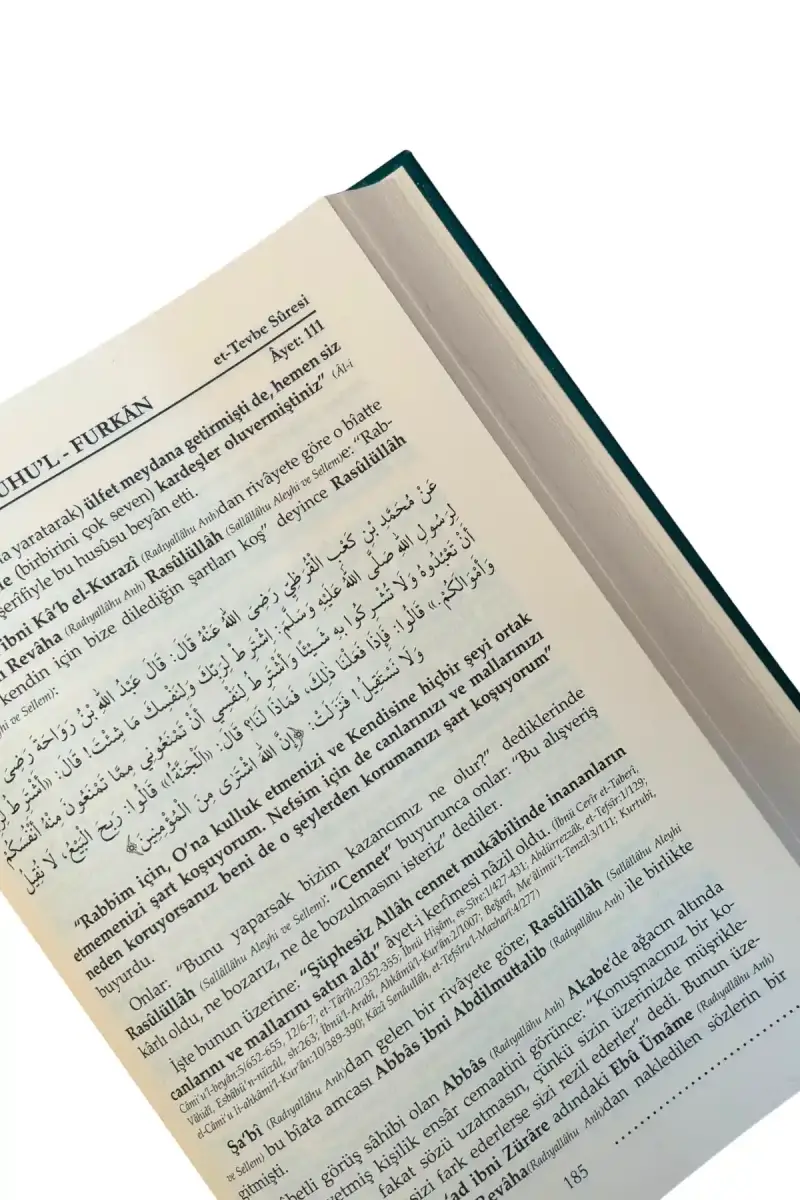 UHU'L - FURKÂN
et-Tevbe Sûresi
Âyet: 111
yaratarak) ülfet meydana getirmişti de, hemen siz
(birbirini çok seven) kardeşler oluvermiştiniz” (Âl-i
şerifiyle bu husûsu beyân etti.
ibni Kâ'b el-Kurazî (Radıyallâhu Anh)dan rivâyete göre o bîatte
Revâha (Radıyallâhu Anh) Rasûlüllâh (Sallâllâhu Aleyhi ve Sellem)e: “Rab-
kendin için bize dilediğin şartları koş” deyince Rasûlüllâh
ve Sellem):
عَنْ مُحَمَّدِ بْنِ كَعْبٍ الْقُرَظِيِّ رَضِيَ اللهُ عَنْهُ قَالَ: قَالَ عَبْدُ اللهِ بْنُ رَوَاحَةَ رَضِيَ
لِرَسُولِ اللهِ صَلَّى اللهُ عَلَيْهِ وَسَلَّمَ: اِشْتَرِطْ لِرَبِّكَ وَلِنَفْسِكَ مَا شِئْتَ! قَالَ: «أَشْتَرِطُ
أَنْ تَعْبُدُوهُ وَلَا تُشْرِكُوا بِهِ شَيْئًا وَأَشْتَرِطُ لِنَفْسِي أَنْ تَمْنَعُونِي مِمَّا تَمْنَعُونَ مِنْهُ أَنْفُسَكُمْ
وَأَمْوَالَكُمْ.» قَالُوا: فَإِذَا فَعَلْنَا ذٰلِكَ، فَمَاذَا لَنَا؟ قَالَ: «اَلْجَنَّةُ!» قَالُوا: رَبِحَ الْبَيْعُ، لَا نُقِيلُ
وَلَا نَسْتَقِيلُ! فَنَزَلَتْ: ﴿إِنَّ اللهَ اشْتَرَى مِنَ الْمُؤْمِنِينَ﴾
“Rabbim için, O'na kulluk etmenizi ve Kendisine hiçbir şeyi ortak
etmemenizi şart koşuyorum. Nefsim için de canlarınızı ve mallarınızı
neden koruyorsanız beni de o şeylerden korumanızı şart koşuyorum”
buyurdu.
Onlar: “Bunu yaparsak bizim kazancımız ne olur?” dediklerinde
Rasûlüllâh (Sallâllâhu Aleyhi ve Sellem): “Cennet” buyurunca onlar: “Bu alışveriş
kârlı oldu, ne bozarız, ne de bozulmasını isteriz” dediler.
İşte bunun üzerine: “Şüphesiz Allâh cennet mukâbilinde inananların
canlarını ve mallarını satın aldı” âyet-i kerîmesi nâzil oldu. (İbnü Cerîr et-Taberî,
Câmi'u'l-beyân:5/652-655, 12/6-7; et-Târîh:2/352-355; İbnü Hişâm, es-Sîre:1/427-431; Abdürrezzâk, et-Tefsîr:1/129;
Vâhidî, Esbâbü'n-nüzûl, sh:263; İbnü'l-Arabî, Ahkâmü'l-Kur'ân:2/1007; Beğavî, Me'âlimü't-Tenzîl:3/111; Kurtubî,
el-Câmi'u li-ahkâmi'l-Kur'ân:10/389-390; Kâzî Senâullâh, et-Tefsîru'l-Mazharî:4/277)
Şa'bî (Radıyallâhu Anh)dan gelen bir rivâyete göre; Rasûlüllâh (Sallâllâhu Aleyhi
ve Sellem) bu bîata amcası Abbâs ibni Abdilmuttalib (Radıyallâhu Anh) ile birlikte
gitmişti.
betli görüş sâhibi olan Abbâs (Radıyallâhu Anh) Akabe'de ağacın altında
yetmiş kişilik ensâr cemaatini görünce: “Konuşmacınız bir ko-
fakat sözü uzatmasın, çünkü sizin üzerinizde müşrikle-
sizi fark ederlerse sizi rezil ederler” dedi. Bunun üze-
'ad ibni Zürâre adındaki Ebû Ümâme (Radıyallâhu Anh)
Revâha (Radıyallâhu Anh)dan nakledilen sözlerin bir
185